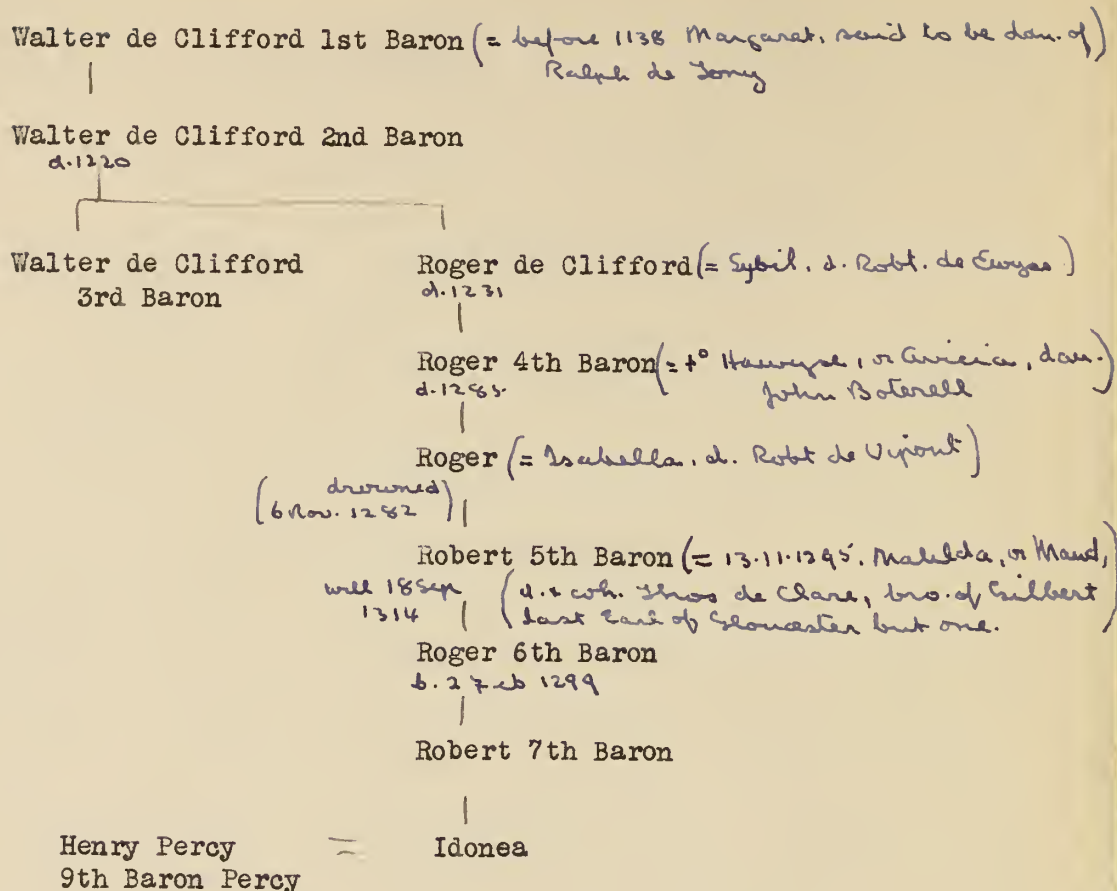 Walter de Clifford 1st Baron (= before 1138 Margaret, said to be dau. of)
Ralph de Tony
Walter de Clifford 2nd Baron
d. 1220
Walter de Clifford Roger de Clifford (= Sybil, d. Robt. de Ewyas)
3rd Baron d. 1231
Roger 4th Baron (= to Hawyse, or Avicia, dau.)
d. 1285. John Boterell
Roger (= Isabella, d. Robt de Vipont)
(drowned
6 Nov. 1282)
Robert 5th Baron (= 13.11.1295. Matilda, or Maud,
will 18 Sep d. & coh. Thos de Clare, bro. of Gilbert
1314 last Earl of Gloucester but one.)
Roger 6th Baron
b. 2 Feb 1299
Robert 7th Baron
Henry Percy = Idonea
9th Baron Percy